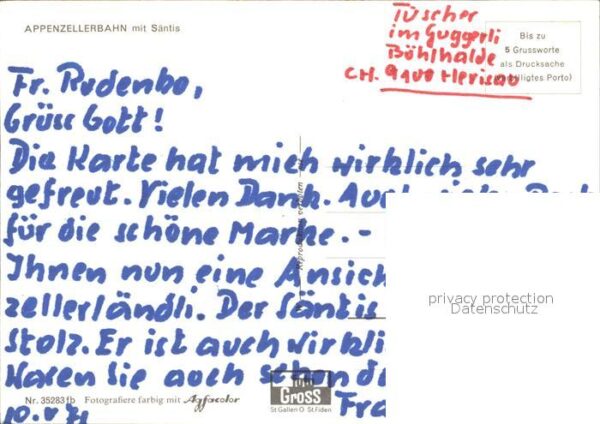 APPENZELLERBAHN mit Säntis
Tüscher
im Guggerli
Böhlhalde
CH. 9100 Herisau
Bis zu
5 Grussworte
als Drucksache
Porto)
Fr. Rudenbo,
Grüss Gott!
Die Karte hat mich wirklich sehr
gefreut. Vielen Dank. Auch
für die schöne Marke.-
Ihnen nun eine Ansich
zellerländli. Der Säntis
Stolz. Er ist auch wirkli
Waren Sie auch schon d
Reproduktion verboten
Nr. 35283 fb Fotografiere farbig mit Agfacolor
Foto
GROSS
St Gallen O St Fiden
Fra
10. V 71
privacy protection
Datenschutz